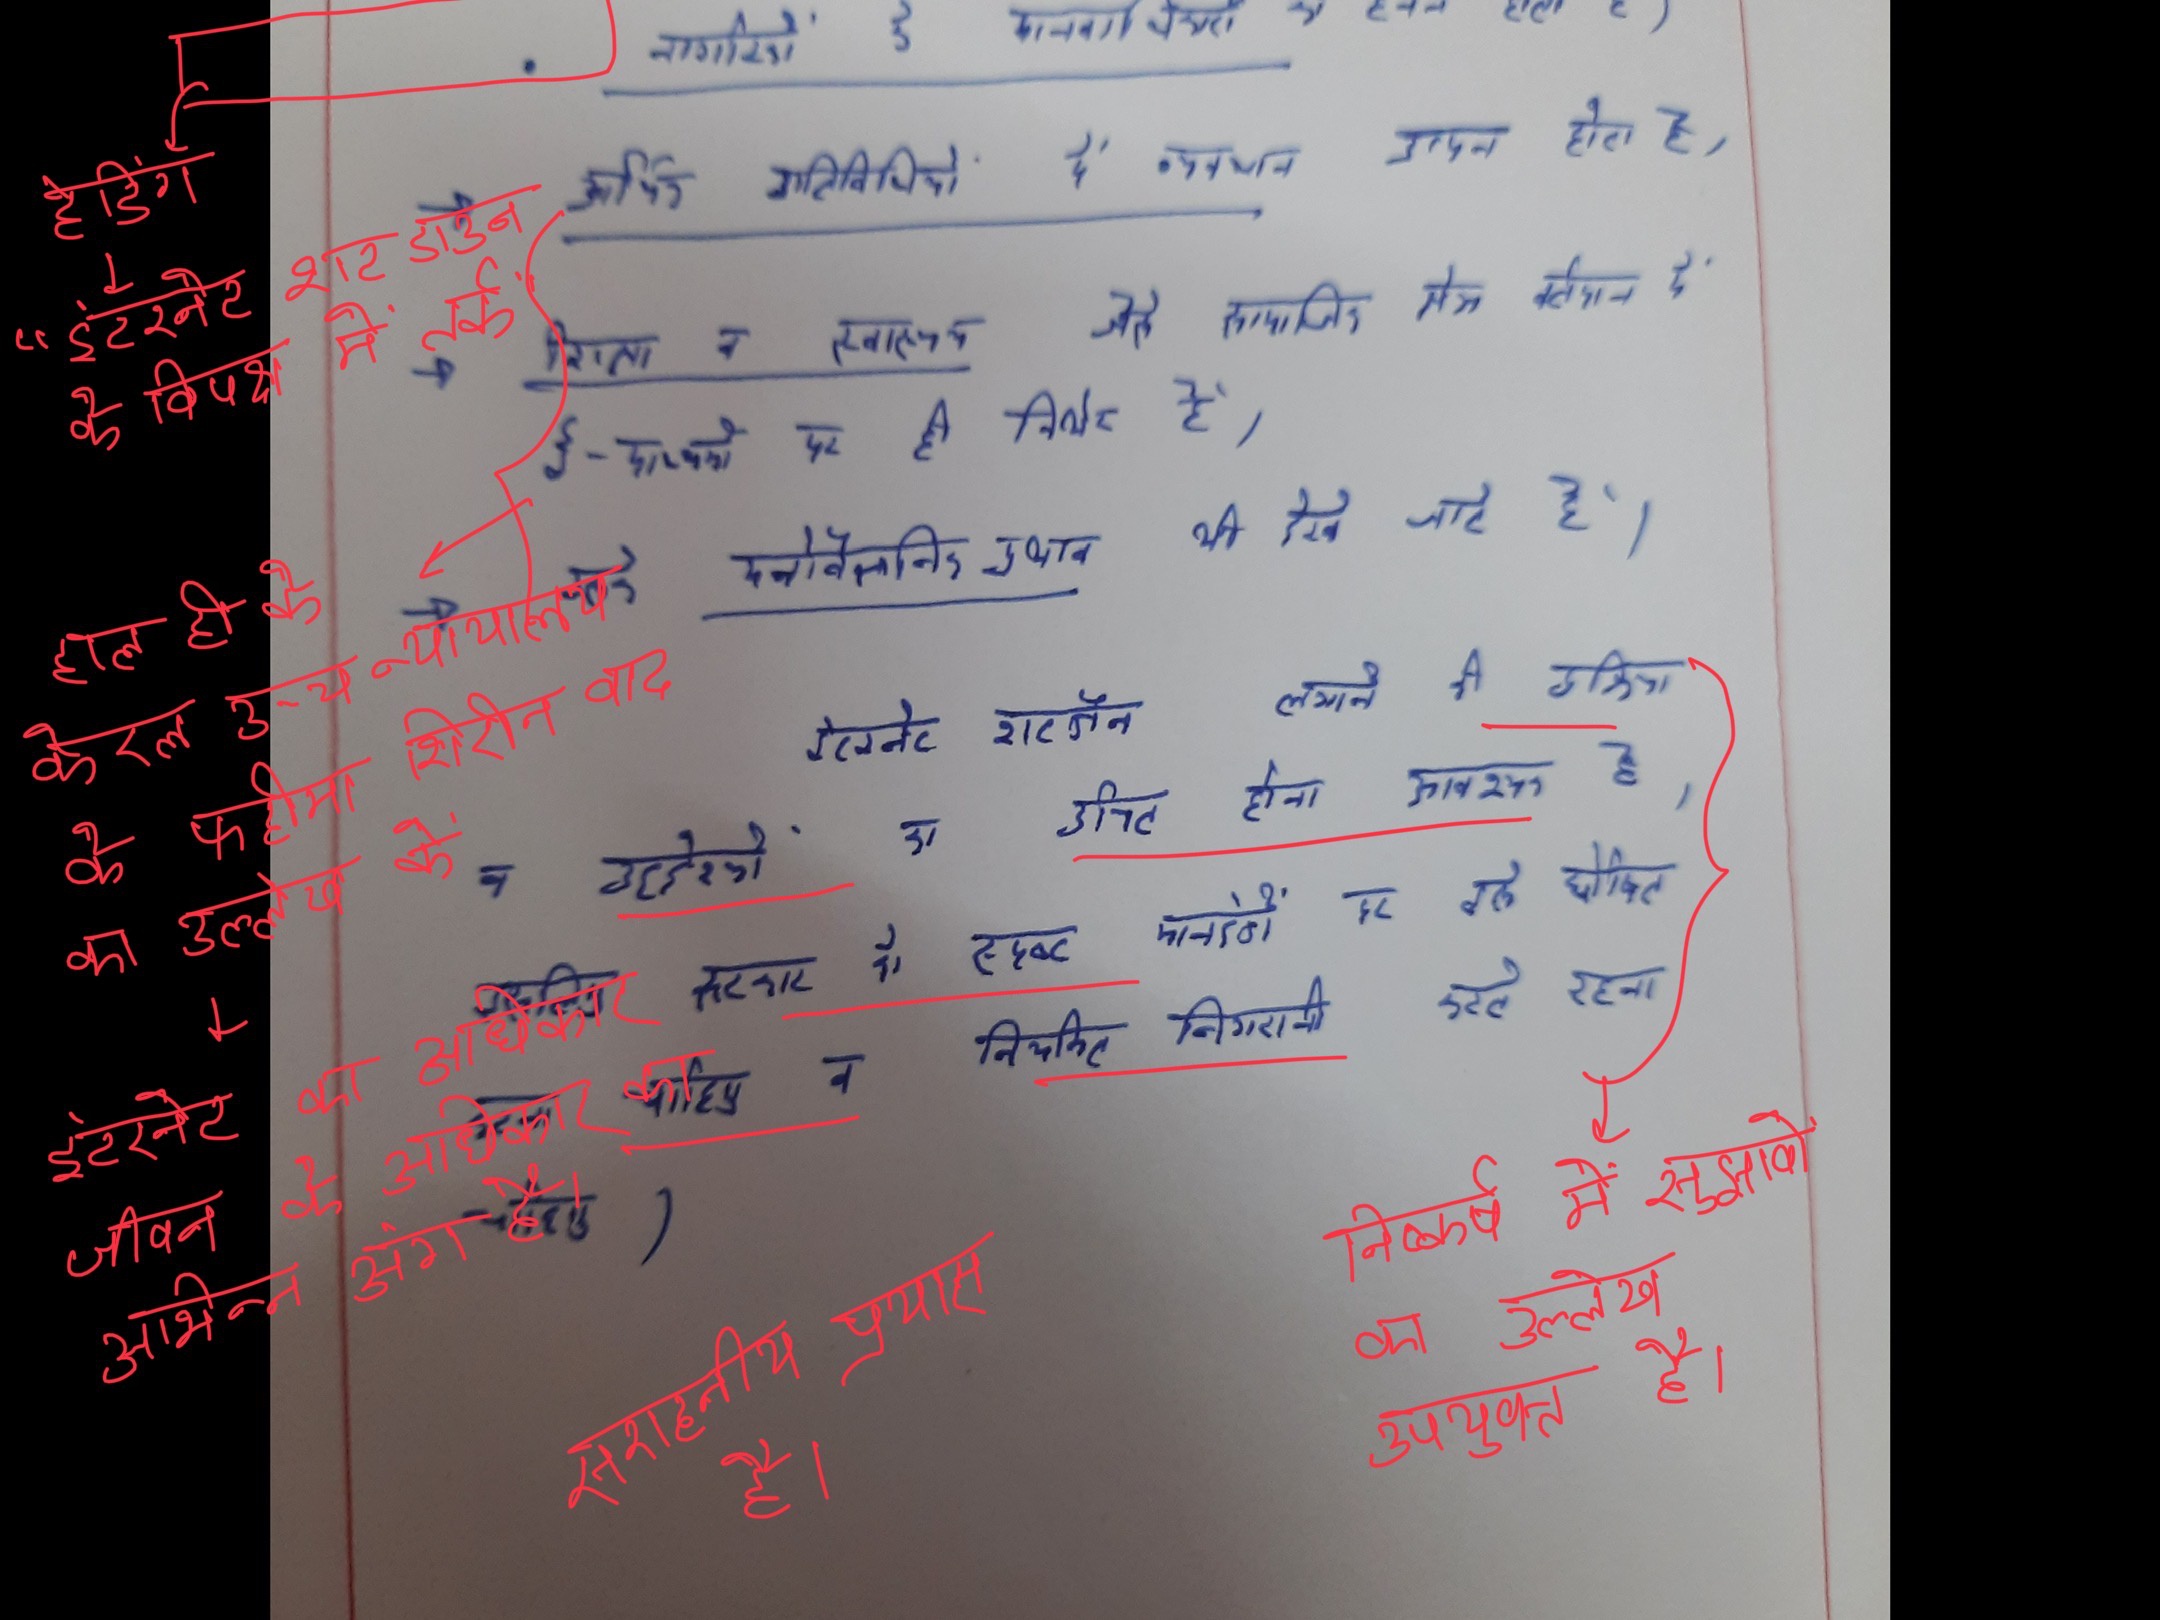 नागरिकों के मानवाधिकारों का हनन होता है)
→ आर्थिक गतिविधियों में व्यवधान उत्पन्न होता है,
→ शिक्षा व स्वास्थ्य जैसे सामाजिक क्षेत्र वर्तमान में
ई-माध्यमों पर ही निर्भर हैं,
→ इसके मनोवैज्ञानिक प्रभाव भी देखे जाते हैं,
इंटरनेट शटडॉन लगाने की प्रक्रिया
व उद्देश्यों का उचित होना आवश्यक है,
इसलिए सरकार को स्पष्ट मानदंडों पर इसे घोषित
करना चाहिए व नियमित निगरानी करते रहना
चाहिए)
हेडिंग
↓
"इंटरनेट शट डाउन
के विपक्ष में तर्क"
हाल ही के
केरल उच्च न्यायालय
के फहीमा शिरीन वाद
का उल्लेख करें
↓
इंटरनेट का अधिकार
जीवन के अधिकार का
अभिन्न अंग है।
निष्कर्ष में सुझावों
का उल्लेख
उपयुक्त है।
सराहनीय प्रयास
है।